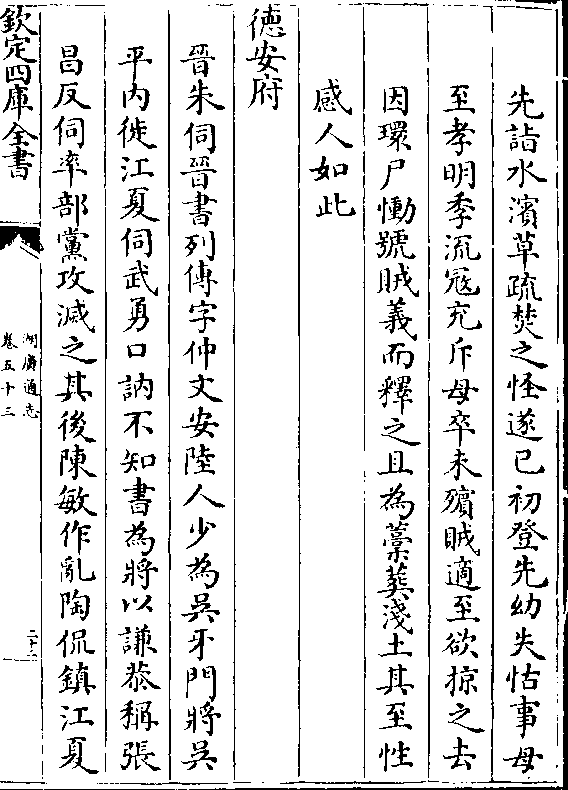 先詣水濱草疏焚之怪遂已初登先幼失怙事母
至孝明季流寇充斥母卒未殯賊適至欲掠之去
因環尸慟號賊義而釋之且為藁葬淺土其至性
感人如此
德安府
晉朱伺晉書列傳字仲文安陸人少為吳牙門將吳
平內徙江夏伺武勇口訥不知書為將以謙恭稱張
昌反伺率部黨攻滅之其後陳敏作亂陶侃鎮江夏
欽定四庫全書
湖廣通志
卷五十三